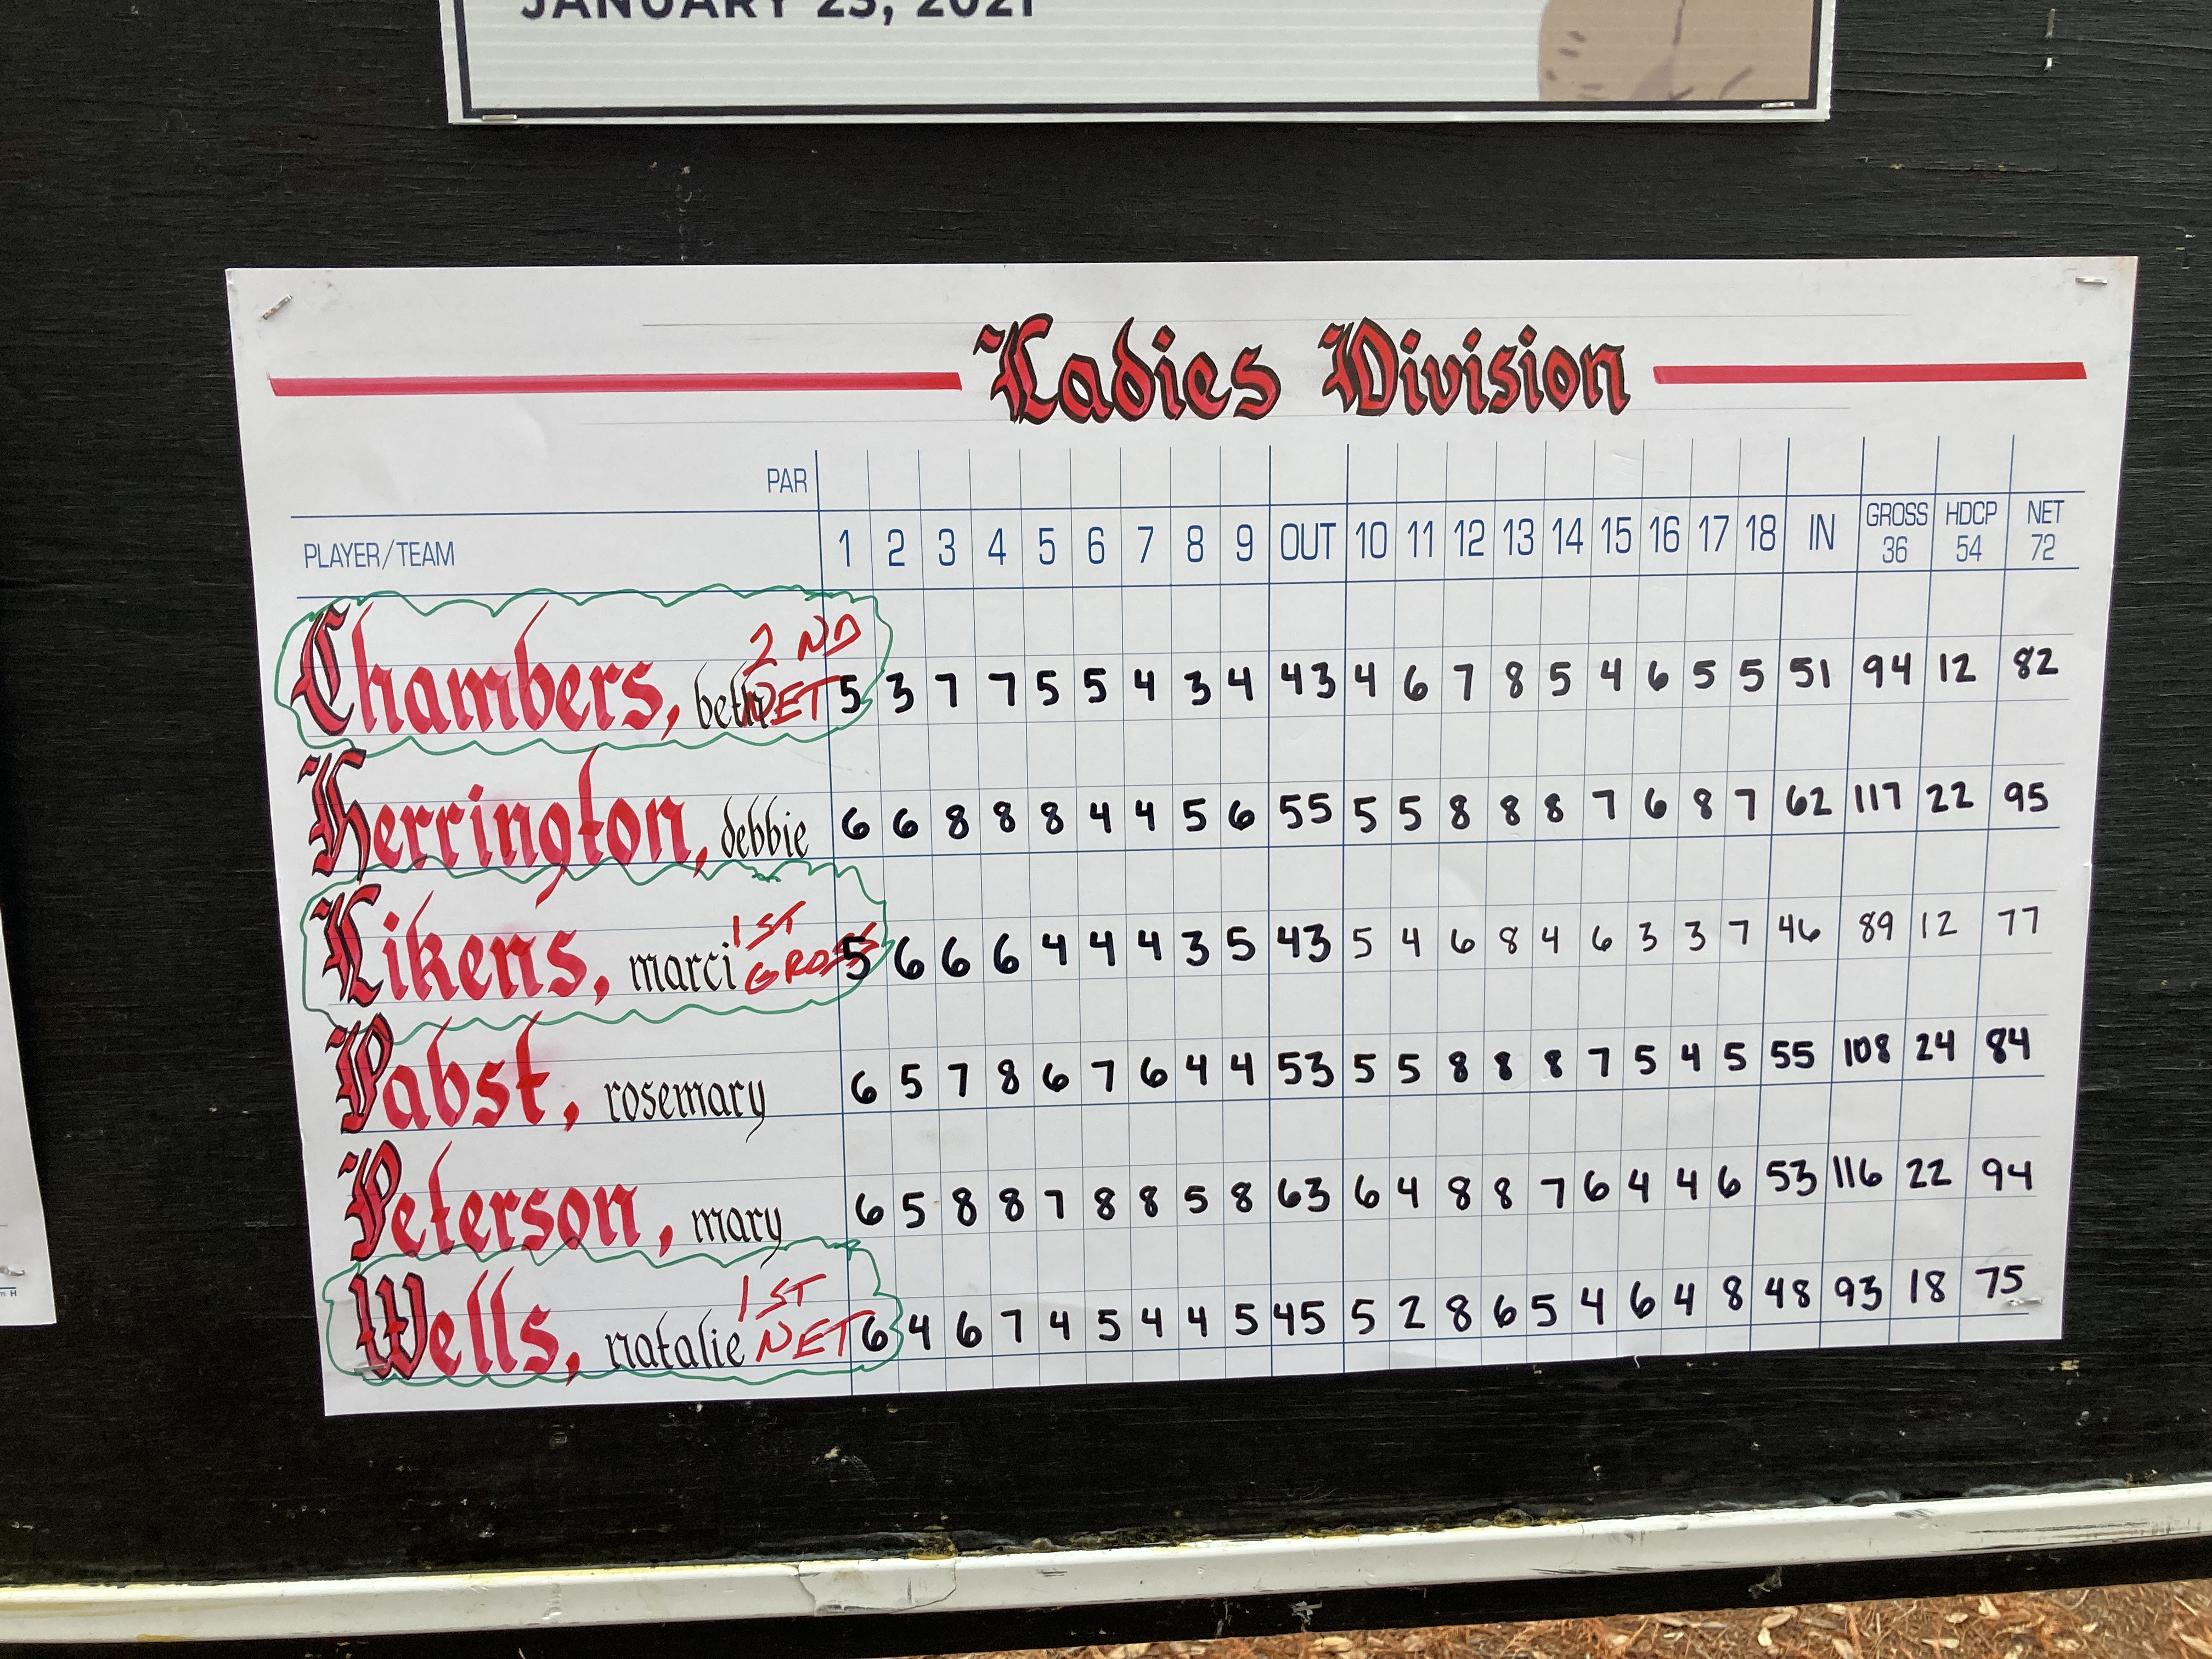 JANUARY 23, 2021
Ladies Division
PAR
PLAYER/TEAM 1 2 3 4 5 6 7 8 9 OUT 10 11 12 13 14 15 16 17 18 IN GROSS 36 HDCP 54 NET 72
2 ND
Chambers, beth NET 5 3 7 7 5 5 4 3 4 43 4 6 7 8 5 4 6 5 5 51 94 12 82
Herrington, debbie 6 6 8 8 8 4 4 5 6 55 5 5 8 8 8 7 6 8 7 62 117 22 95
1ST
Likens, marci GROSS 5 6 6 6 4 4 4 3 5 43 5 4 6 8 4 6 3 3 7 46 89 12 77
Pabst, rosemary 6 5 7 8 6 7 6 4 4 53 5 5 8 8 8 7 5 4 5 55 108 24 84
Peterson, mary 6 5 8 8 7 8 8 5 8 63 6 4 8 8 7 6 4 4 6 53 116 22 94
1ST
Wells, natalie NET 6 4 6 7 4 5 4 4 5 45 5 2 8 6 5 4 6 4 8 48 93 18 75